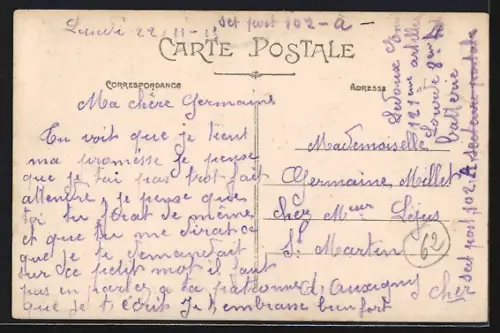 Lundi 22-11-15 sect post 102-A-
CARTE POSTALE
CORRESPONDANCE
ADRESSE
Ma chère Germaine
Tu voit que je tient
ma promésse je pense
que je tai pas trop fait
attendre, je pense que
toi tu forat de même
et que tu me dirat ce
que je te demandait
sur ce petit mot il faut
pas en parler a ta patronne
que je t'écrit Je t'embrasse bien fort
Mademoiselle
Germaine Millet
chez Mr
St Martin
d'Auxigny
Cher
62
121eme artillerie
Lourde 8eme
batterie
secteur postal
sect post. 102. A